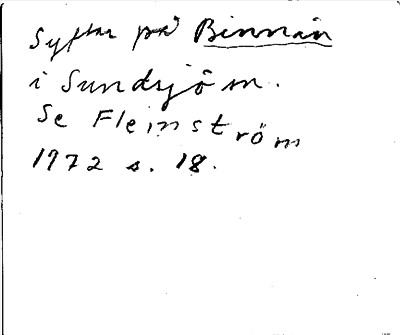 Syftar på Binnån
i Sundsjön.
Se Fleinström
1972 s. 18.